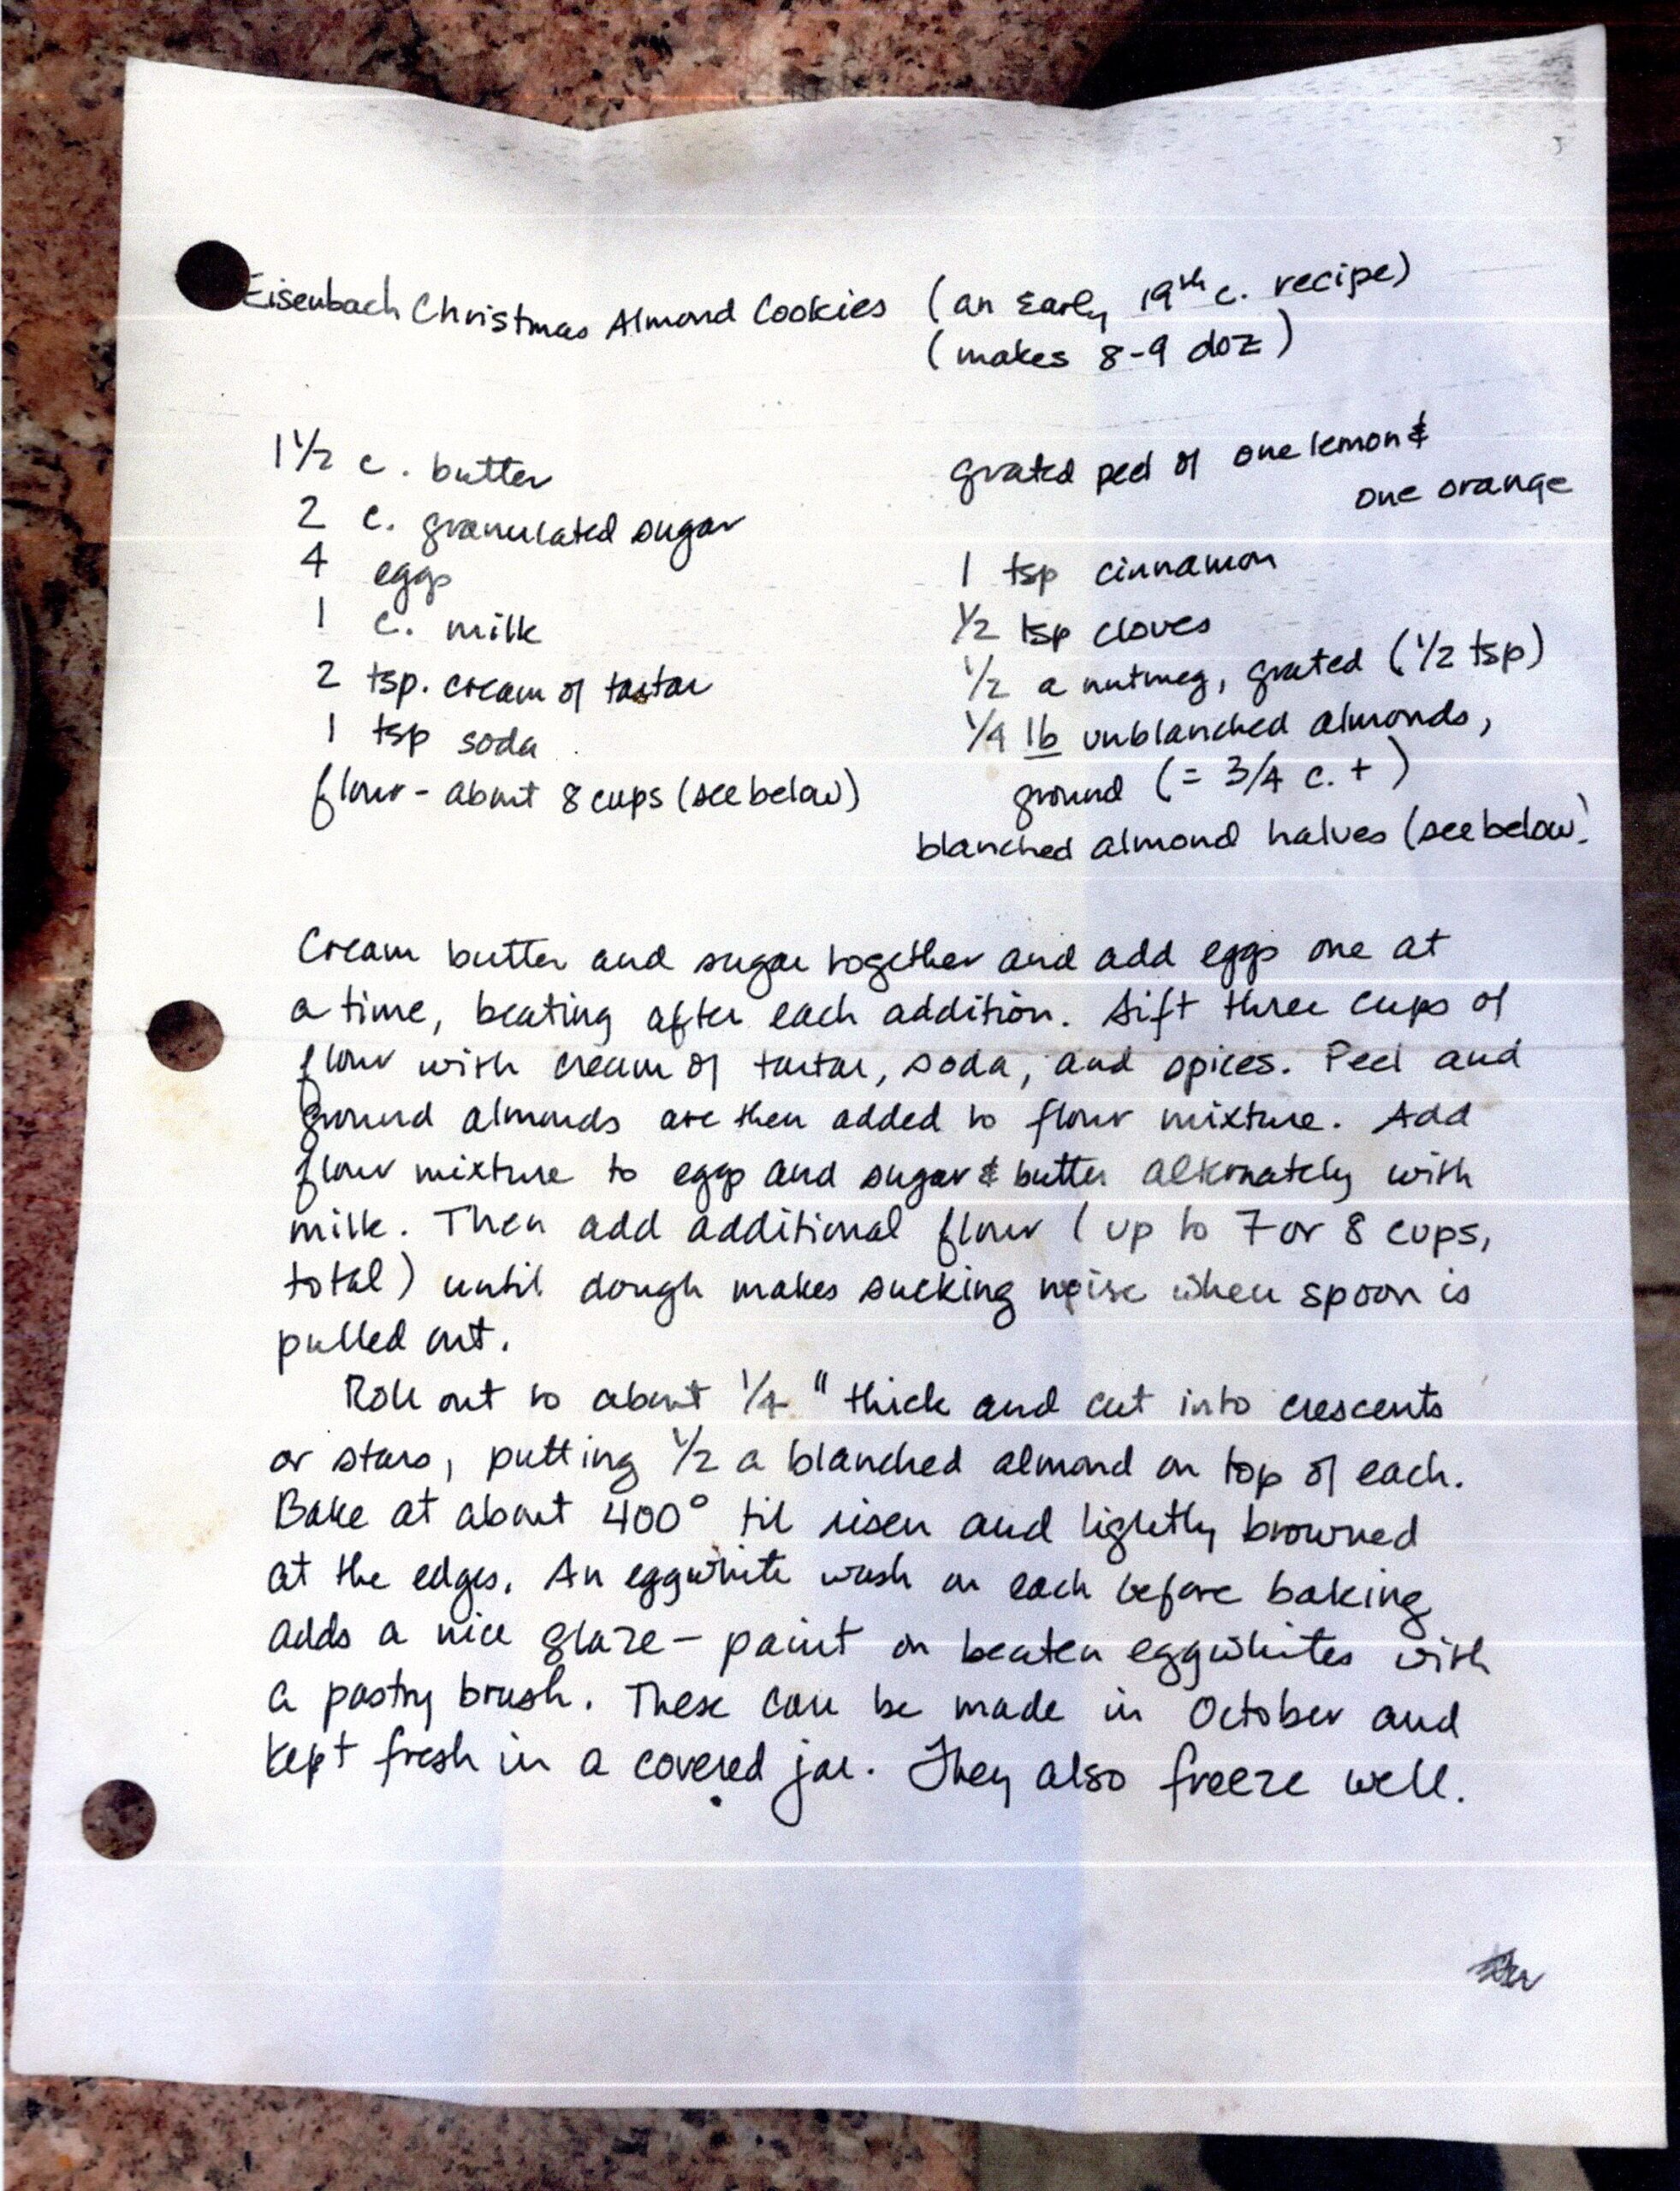 Eisenbach Christmas Almond Cookies (an Early 19th c. recipe)
(makes 8-9 doz)
1 1/2 c. butter
2 c. granulated sugar
4 eggs
1 c. milk
2 tsp. cream of tartar
1 tsp soda
flour - about 8 cups (see below)
grated peel of one lemon &
one orange
1 tsp cinnamon
1/2 tsp cloves
1/2 a nutmeg, grated (1/2 tsp)
1/4 lb unblanched almonds,
ground (= 3/4 c. +)
blanched almond halves (see below)
Cream butter and sugar together and add eggs one at
a time, beating after each addition. Sift three cups of
flour with cream of tartar, soda, and spices. Peel and
ground almonds are then added to flour mixture. Add
flour mixture to eggs and sugar & butter alternately with
milk. Then add additional flour (up to 7 or 8 cups,
total) until dough makes sucking noise when spoon is
pulled out.
Roll out to about 1/4" thick and cut into crescents
or stars, putting 1/2 a blanched almond on top of each.
Bake at about 400° til risen and lightly browned
at the edges. An eggwhite wash on each before baking
adds a nice glaze - paint on beaten eggwhites with
a pastry brush. These can be made in October and
kept fresh in a covered jar. They also freeze well.